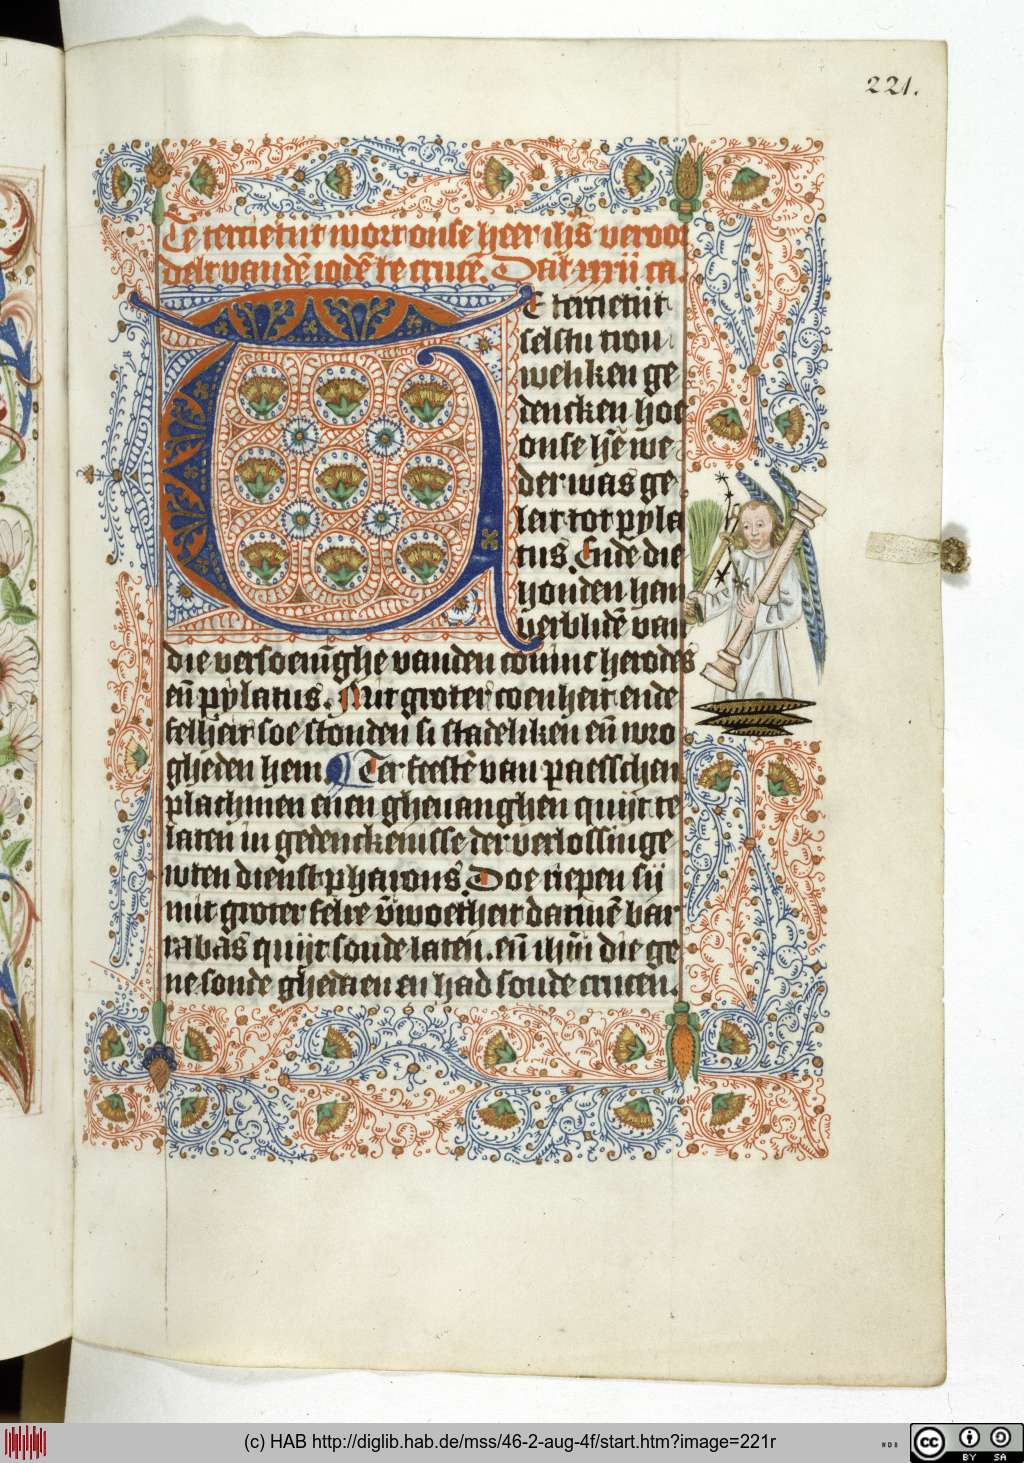 221.
Te tercietijt wort onse heer ihs veroo
delt vandē iodē te crucē. Dat xxxii ca.
TE tercietijt
selstu trou
weliken ge
dencken hoe
onse hē we
der was ge
leit tot pyla
tus. Ende die
honden hen
verblidē van
die versoenīghe vanden coninc herodes
eñ pylatus. Mit groter coenheit ende
felheit soe stonden si stadeliken eñ wro
gheden hem. Ter feestē van paesschen
plachmen enen ghevanghen quijt te
laten in gedenckenisse der verlossinge
wten dienst pharons. Doe riepen sij
mit groter felre v̄woetheit datmē bar
rabas quijt soude laten. eñ ihm̄ die ge
ne sonde ghedaen en had soude crucen.
(c) HAB http://diglib.hab.de/mss/46-2-aug-4f/start.htm?image=221r
WDB
cc
BY SA